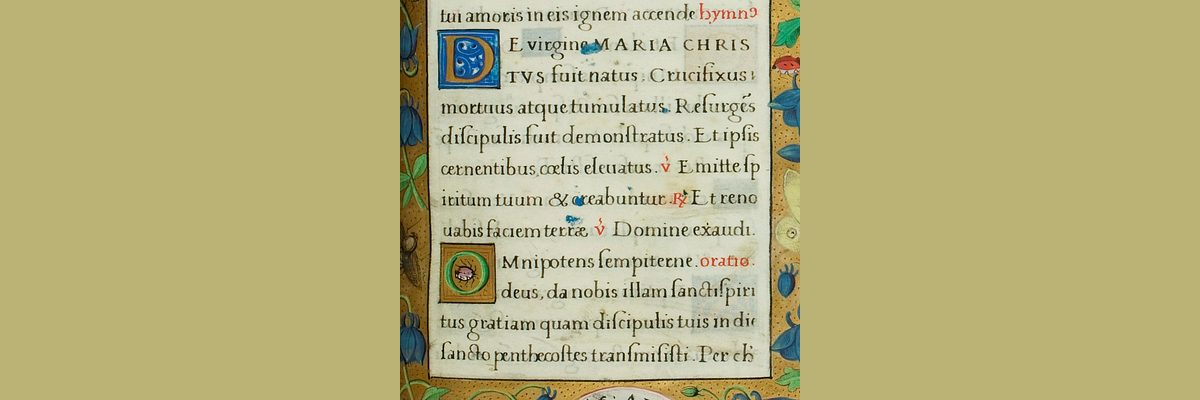 tui amoris in eis ignem accende hymnꝰ
DE virgine MARIA CHRIS
TVS fuit natus. Crucifixus
mortuus atque tumulatus. Reſurgēs
diſcipulis fuit demonſtratus. Et ipſis
cernentibus cœlis eleuatus. v̓ Emitte ſp
iritum tuum & creabuntur. ℟ Et reno
uabis faciem terræ v̓ Domine exaudi.
OMnipotens ſempiterne. oratio.
deus, da nobis illam ſanctiſpiri
tus gratiam quam diſcipulis tuis in die
ſancto penthecoſtes tranſmiſiſti. Per ch